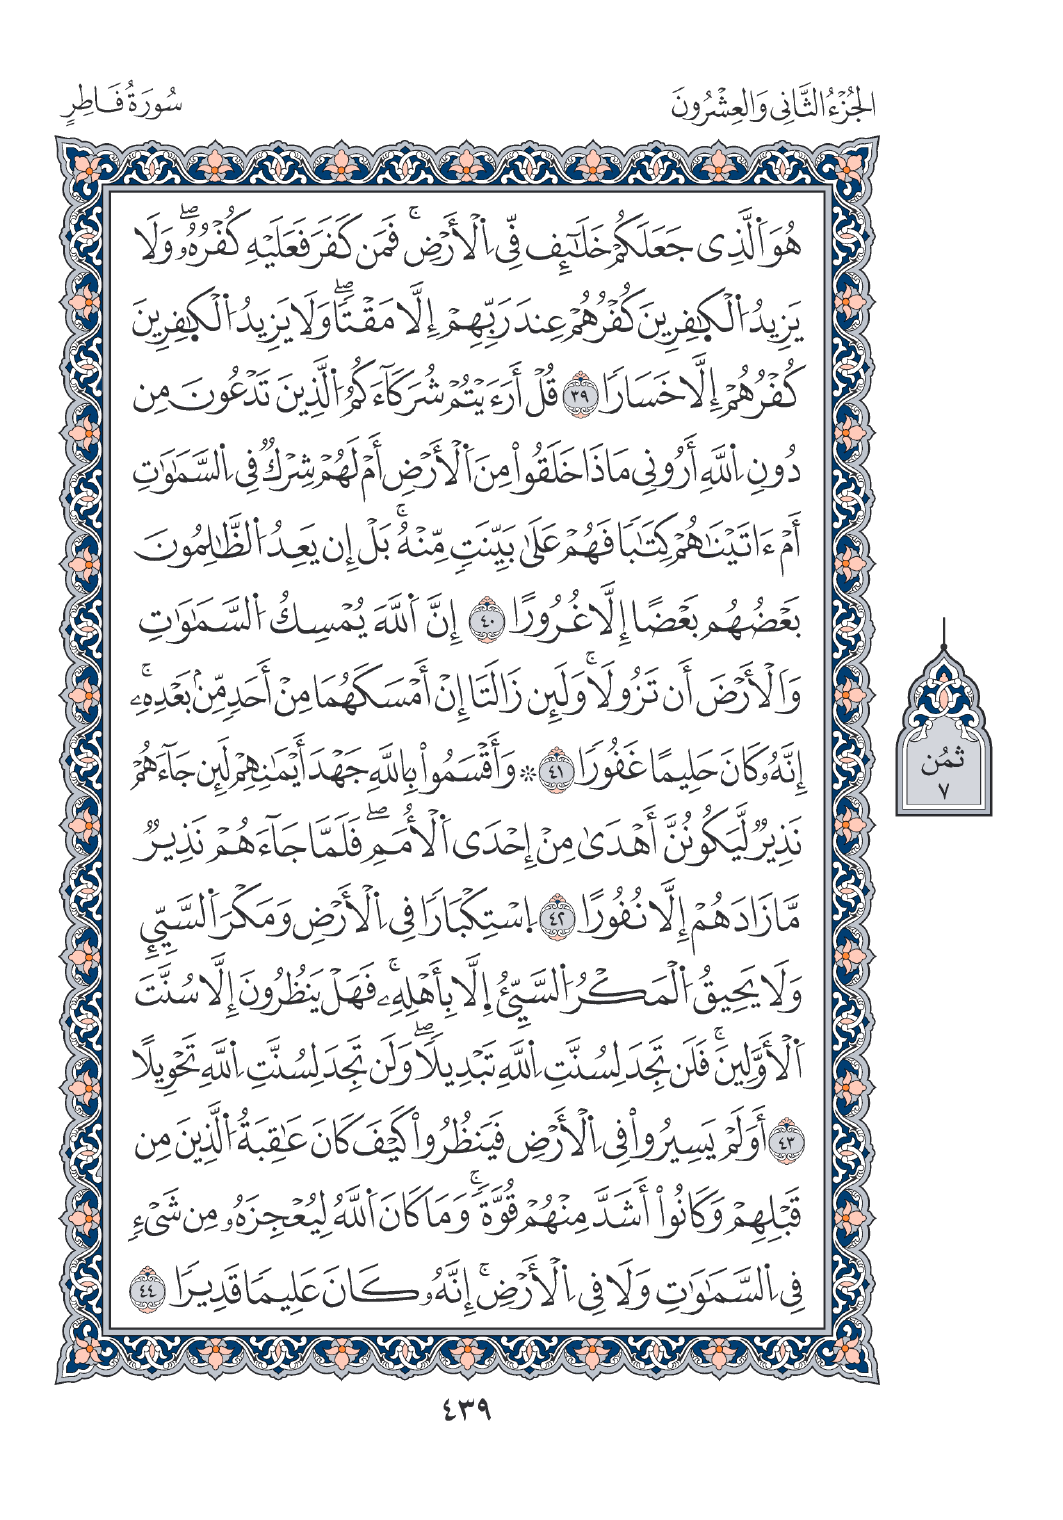 الجُزْءُ الثَّانِي وَالعِشْرُونَ
سُورَةُ فَاطِرٍ
هُوَ اَ۬لَّذِے جَعَلَكُمْ خَلَٰٓئِفَ فِے اِ۬لْأَرْضِۚ فَمَن كَفَرَ فَعَلَيْهِ كُفْرُهُۥۖ وَلَا
يَزِيدُ اُ۬لْكٰ۪فِرِينَ كُفْرُهُمْ عِندَ رَبِّهِمْ إِلَّا مَقْتٗاۖ وَلَا يَزِيدُ اُ۬لْكٰ۪فِرِينَ
كُفْرُهُمْ إِلَّا خَسَارٗا ٣٩ قُلْ أَرَءَيْتُمْ شُرَكَآءَكُمُ اُ۬لَّذِينَ تَدْعُونَ مِن
دُونِ اِ۬للَّهِ أَرُونِے مَاذَا خَلَقُواْ مِنَ اَ۬لْأَرْضِ أَمْ لَهُمْ شِرْكٞ فِے اِ۬لسَّمَٰوَٰتِ
أَمْ ءَاتَيْنَٰهُمْ كِتَٰبٗا فَهُمْ عَلَىٰ بَيِّنَتٖ مِّنْهُۚ بَلْ إِن يَعِدُ اُ۬لظَّٰلِمُونَ
بَعْضُهُم بَعْضًا إِلَّا غُرُورًا ٤٠ إِنَّ اَ۬للَّهَ يُمْسِكُ اُ۬لسَّمَٰوَٰتِ
وَالْأَرْضَ أَن تَزُولَاۚ وَلَئِن زَالَتَا إِنْ أَمْسَكَهُمَا مِنْ أَحَدٖ مِّنۢ بَعْدِهِۦۚ
إِنَّهُۥ كَانَ حَلِيمًا غَفُورٗا ٤١ ۞ وَأَقْسَمُواْ بِاللَّهِ جَهْدَ أَيْمَٰنِهِمْ لَئِن جَآءَهُمْ
نَذِيرٞ لَّيَكُونُنَّ أَهْدَىٰ مِنْ إِحْدَى اَ۬لْأُمَمِۖ فَلَمَّا جَآءَهُمْ نَذِيرٞ
مَّا زَادَهُمْ إِلَّا نُفُورًا ٤٢ اِ۪سْتِكْبَارٗا فِے اِ۬لْأَرْضِ وَمَكْرَ اَ۬لسَّيِّئِ
وَلَا يَحِيقُ اُ۬لْمَكْرُ اُ۬لسَّيِّئُ إِلَّا بِأَهْلِهِۦۚ فَهَلْ يَنظُرُونَ إِلَّا سُنَّتَ
اَ۬لْأَوَّلِينَۚ فَلَن تَجِدَ لِسُنَّتِ اِ۬للَّهِ تَبْدِيلٗاۖ وَلَن تَجِدَ لِسُنَّتِ اِ۬للَّهِ تَحْوِيلًا
٤٣ أَوَلَمْ يَسِيرُواْ فِے اِ۬لْأَرْضِ فَيَنظُرُواْ كَيْفَ كَانَ عَٰقِبَةُ اُ۬لَّذِينَ مِن
قَبْلِهِمْ وَكَانُواْ أَشَدَّ مِنْهُمْ قُوَّةٗۚ وَمَا كَانَ اَ۬للَّهُ لِيُعْجِزَهُۥ مِن شَےْءٖ
فِے اِ۬لسَّمَٰوَٰتِ وَلَا فِے اِ۬لْأَرْضِۚ إِنَّهُۥ كَانَ عَلِيمٗا قَدِيرٗا ٤٤
ثمُن
٧
٤٣٩